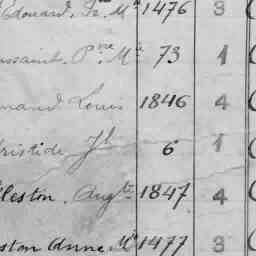 Edouard, Fr. M. 1476 3
ussaint, Pre. M. 73 1
mand Louis 1846 4
ristide Jh 6 1
lleston, Augte. 1847 4
ston Anne Me 1477 3